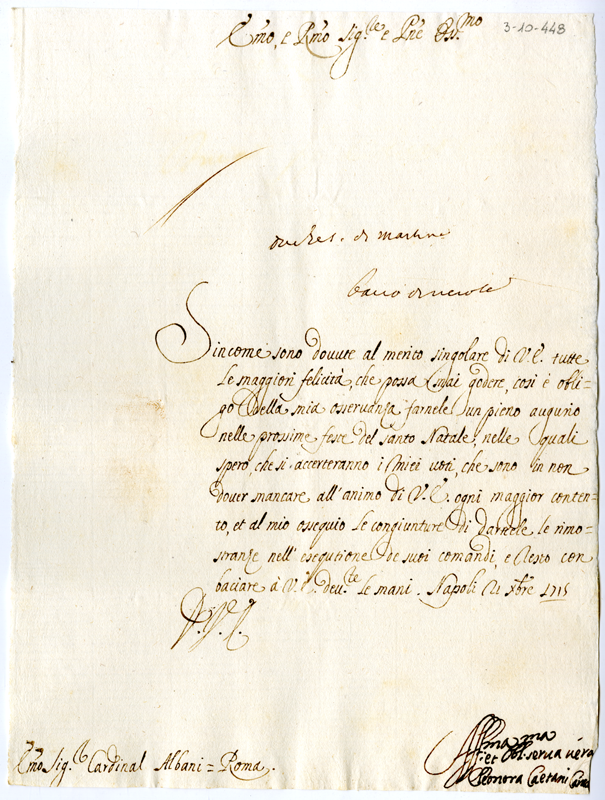 Emo, e Rmo Sig.re e Pne Oss.mo
3-10-448
duches. di martin
Sincome sono dovute al merito singolare di V.E. tutte
le maggiori felicità, che possa mai godere, così è obli-
go della mia osservanza farnele un pieno augurio
nelle prossime feste del santo Natale, nelle quali
spero, che si accerteranno i miei voti, che sono in non
dover mancare all'animo di V.E. ogni maggior conten-
to, et al mio ossequio le congiunture di darnele le rimo-
stranze nell'esequtione de suoi comandi, e resto con
baciare à V.E. dev.te le mani. Napoli 21 Xbre 1715
Emo Sig.r Cardinal Albani = Roma.
ma ma
et obserua
Eleonora Caetani